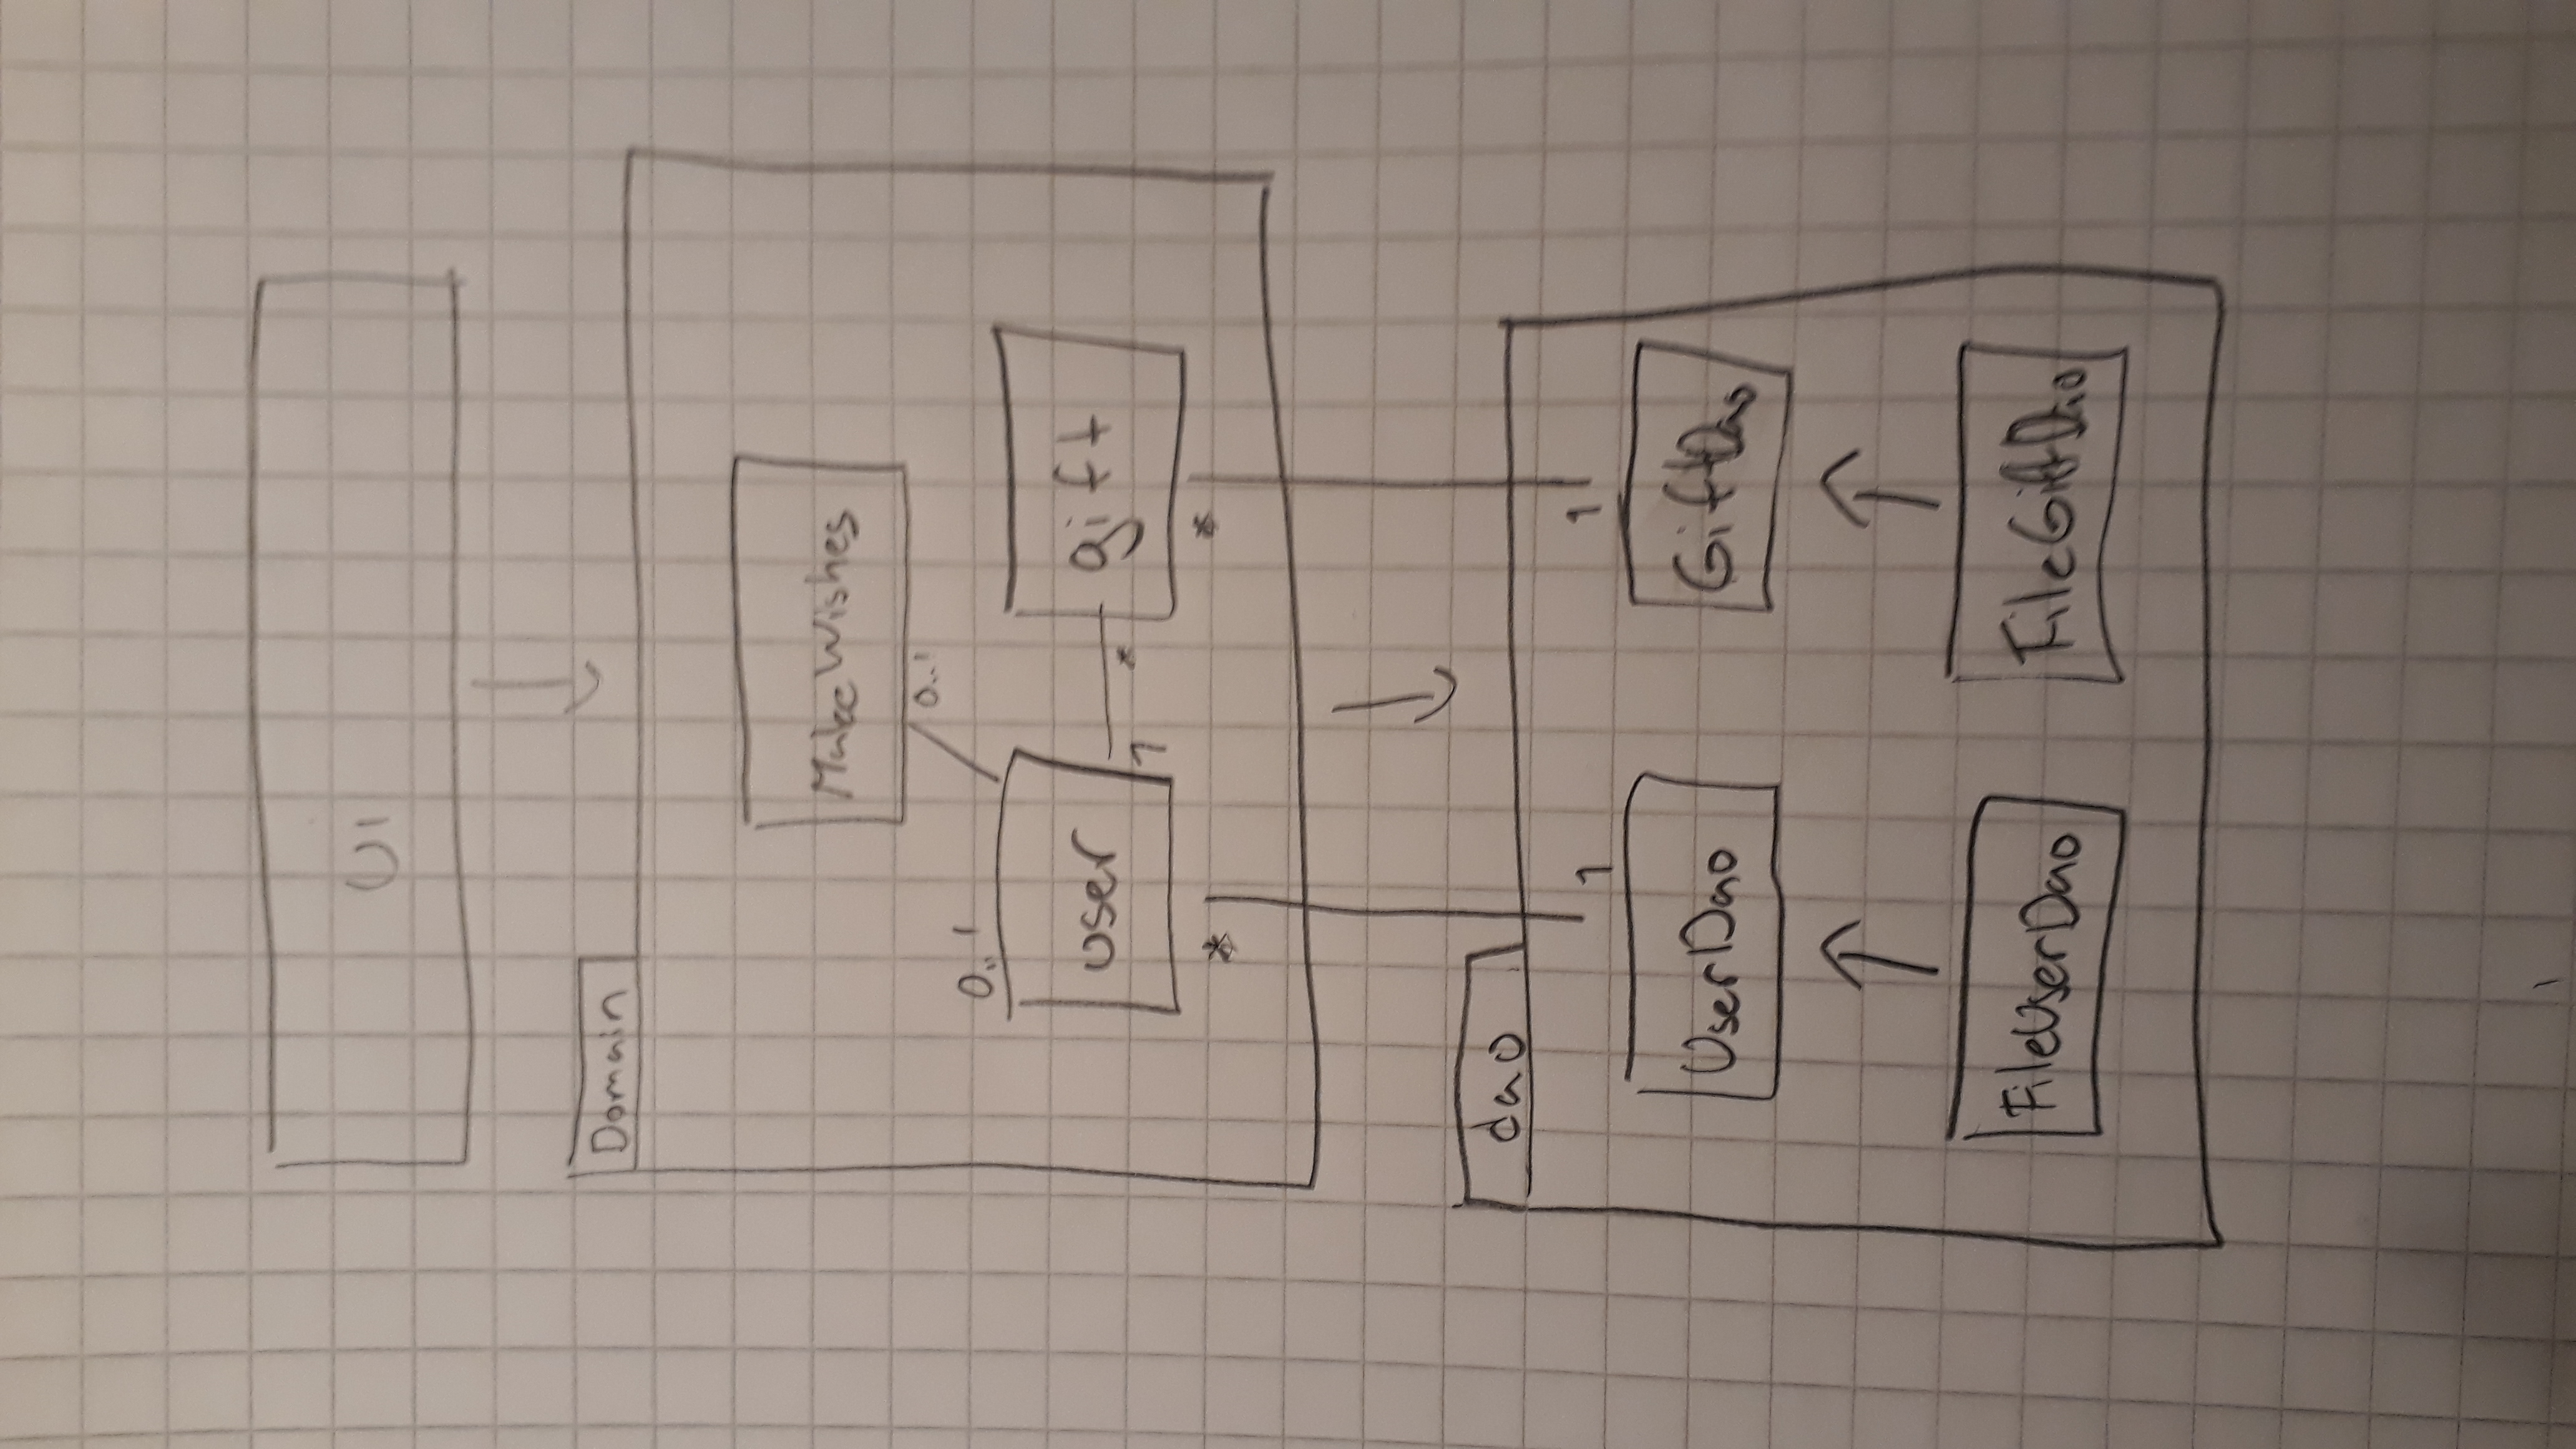 UI
Domain
MakeWishes
0..1
0..1
user
gift
1
*
*
*
dao
1
1
UserDao
GiftDao
FileUserDao
FileGiftDao